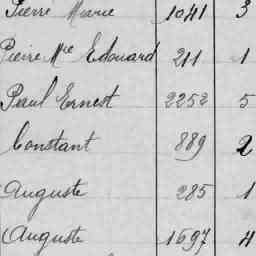 Pierre Marie 1041 3
Pierre Mie Edouard 211 1
Paul Ernest 2252 5
Constant 889 2
Auguste 285 1
Auguste 1697 4